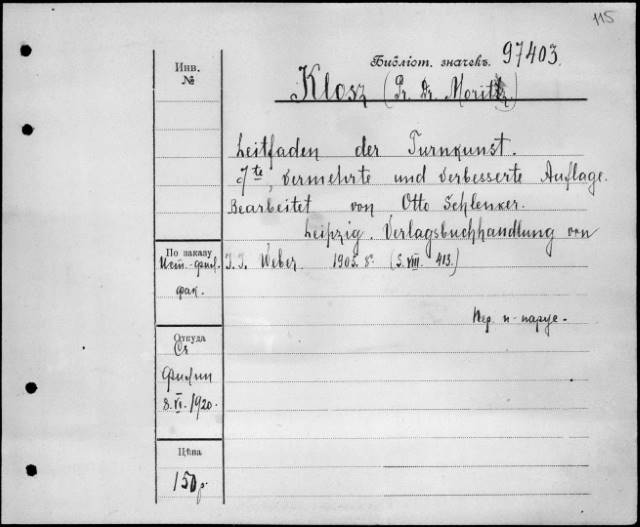 115
Библіот. значекъ. 97403.
Инв.
№
Klosz (Pr. Dr. Moritz)
Leitfaden der Turnkunst.
7te, vermehrte und verbesserte Auflage.
Bearbeitet von Otto Schlenker.
Leipzig. Verlagsbuchhandlung von
J. J. Weber 1905. 8° (S. VIII. 413.)
По заказу
Ист.-фил.
фак.
Пер. п-
Откуда
Съ
8.VI.1920.
Цѣна
150 р.